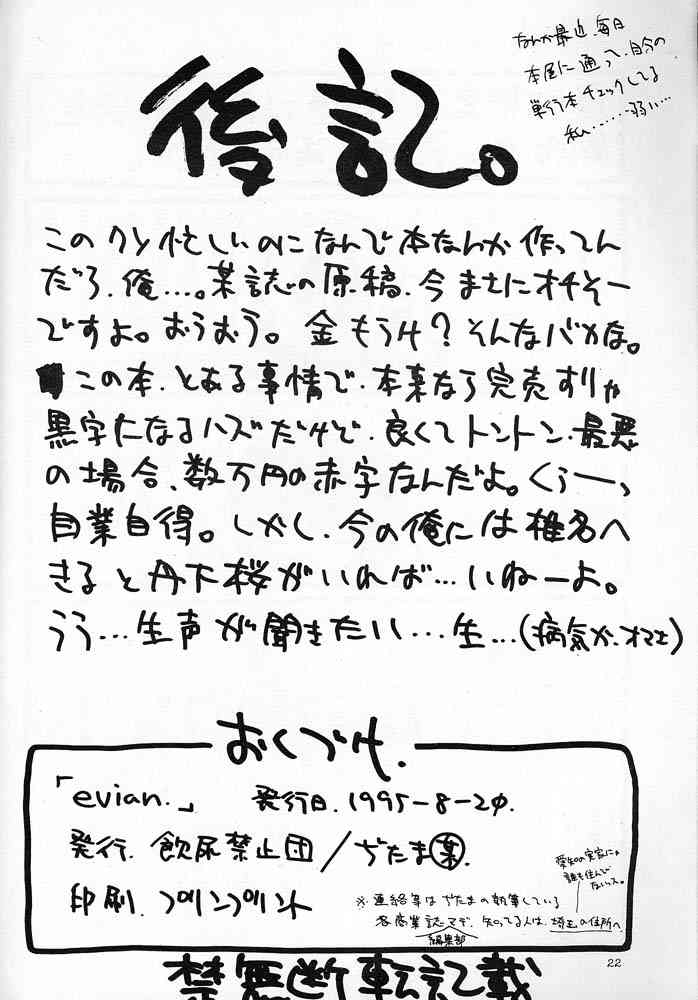 後記。
なんか最近、毎日
本屋に通って、自分の
単行本チェックしてる
私……弱い…
このクソ忙しいのになんで本なんか作ってん
だろ、俺…。某誌の原稿、今まさにオチそー
ですよ。おうおう。金もうけ?そんなバカな。
この本、とある事情で、本来なら完売すりゃ
黒字になるハズだけど、良くてトントン、最悪
の場合、数万円の赤字なんだよ。くぅーっ
自業自得。しかし、今の俺には椎名へ
きると丹下桜がいれば…いねーよ。
うう…生声が聞きたい…生…(病気か、オマエ)
おくづけ.
「evian.」 発行日.1995-8-20.
発行. 飲尿禁止団/ぢたま㊞
印刷. プリンプリント
※連絡等はぢたまの執筆している
各商業誌マデ、知ってる人は、埼玉の住所へ
編集部
愛知の実家にゃ
誰も住んで
ないッス。
22
禁無断転記載